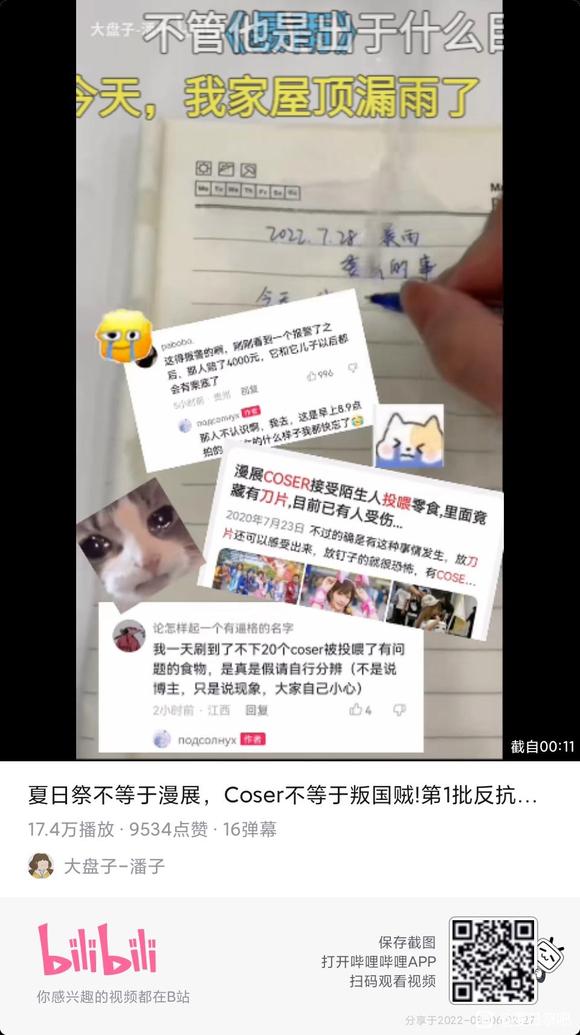 大盘子-潘子
不管他是出于什么目
今天，我家屋顶漏雨了
Mo Tu We Th Fr Sa Su
2022.7.28 暴雨
的事
今天
pabobo.
这得报警的啊，刚刚看到一个报警了之
后，那人赔了4000元，它和它儿子以后都
会有案底了
5小时前 · 贵州 回复
996
подсолнух 作者
那人不认识啊，我去，这是早上8.9点
拍的
的什么样子我都快忘了
漫展COSER接受陌生人投喂零食,里面竟
藏有刀片,目前已有人受伤...
2020年7月23日 不过的确是有这种事情发生，放刀
片还可以感受出来，放钉子的就很恐怖，有COSE...
论怎样起一个有逼格的名字
我一天刷到了不下20个coser被投喂了有问
题的食物，是真是假请自行分辨（不是说
博主，只是说现象，大家自己小心）
2小时前 · 江西 回复
4
подсолнух 作者
截自00:11
夏日祭不等于漫展，Coser不等于叛国贼!第1批反抗...
17.4万播放 · 9534点赞 · 16弹幕
大盘子-潘子
bilibili
你感兴趣的视频都在B站
保存截图
打开哔哩哔哩APP
扫码观看视频
分享于2022-08-06